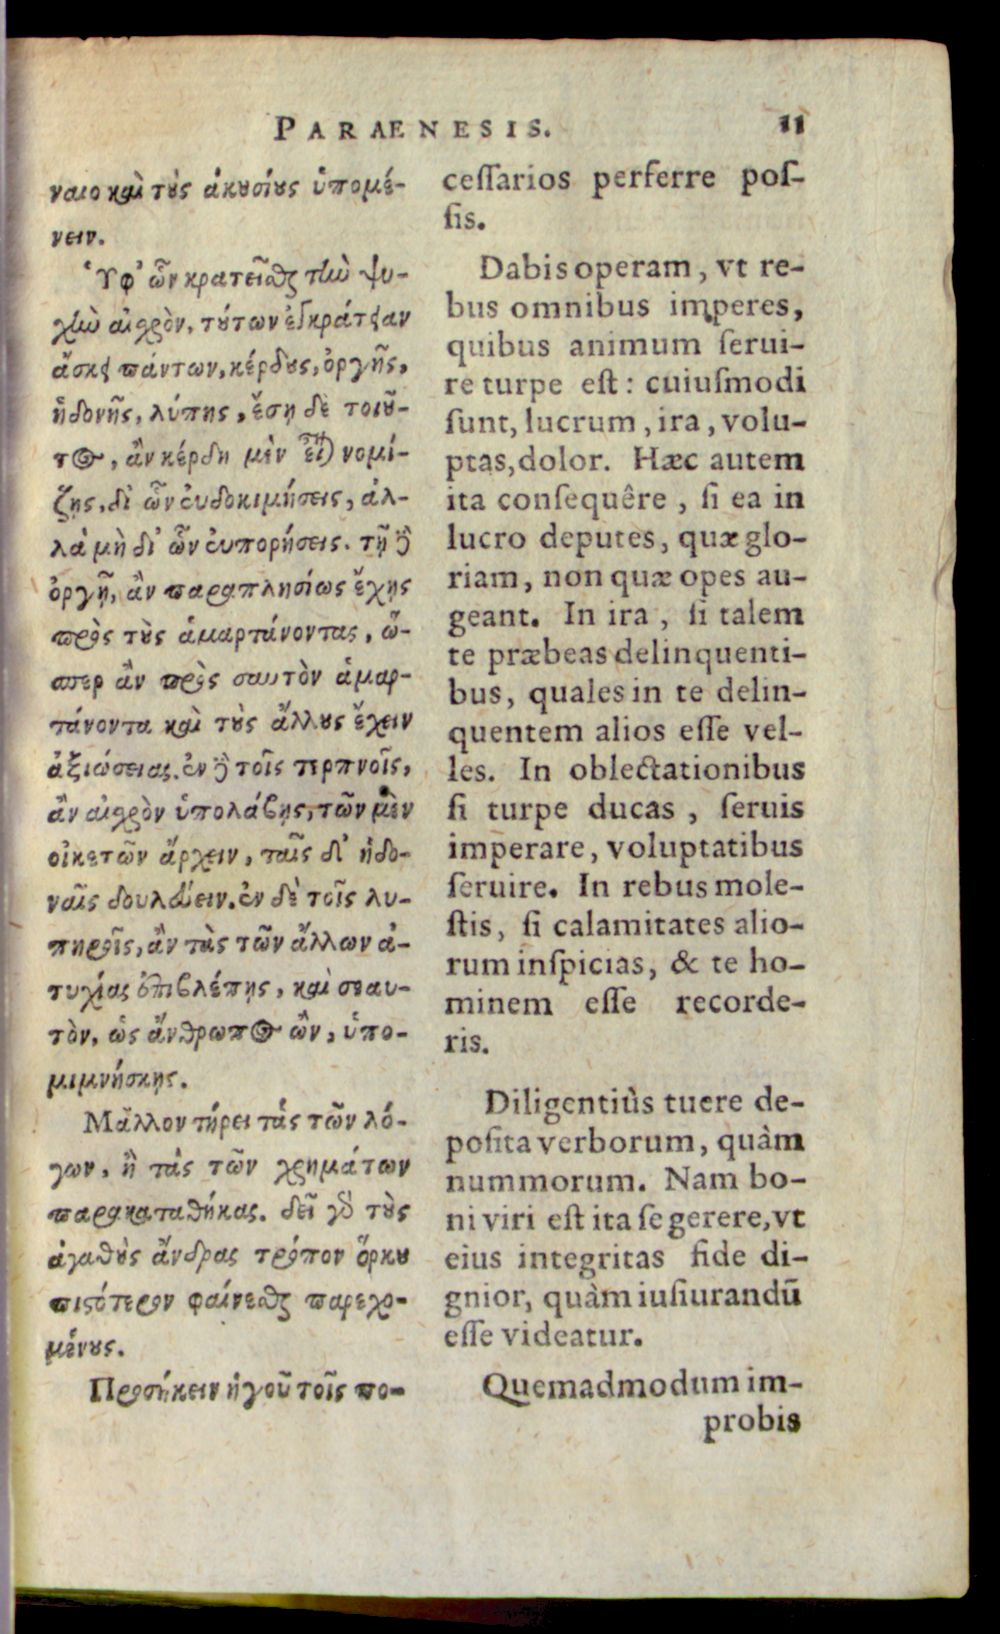 PARAENESIS. 11
ναιο καὶ τοὺς ἀκουσίους ὑπομέ-
νειν.
Ὑφ' ὧν κρατεῖσθαι τὴν ψυ-
χὴν αἰσχρὸν, τούτων ἐγκράτειαν
ἄσκει πάντων, κέρδους, ὀργῆς,
ἡδονῆς, λύπης, ἔσῃ δὲ τοιοῦ-
τος, ἂν κέρδη μὲν εἶναι νομί-
ζῃς, δι' ὧν εὐδοκιμήσεις, ἀλ-
λὰ μὴ δι' ὧν εὐπορήσεις. τῇ δὲ
ὀργῇ, ἂν παραπλησίως ἔχῃς
πρὸς τοὺς ἁμαρτάνοντας, ὥ-
σπερ ἂν πρὸς σαυτὸν ἁμαρ-
τάνοντα καὶ τοὺς ἄλλους ἔχειν
ἀξιώσειας. ἐν δὲ τοῖς τερπνοῖς,
ἂν αἰσχρὸν ὑπολάβῃς, τῶν μὲν
οἰκετῶν ἄρχειν, ταῖς δ' ἡδο-
ναῖς δουλεύειν. ἐν δὲ τοῖς λυ-
πηροῖς, ἂν τὰς τῶν ἄλλων ἀ-
τυχίας ἐπιβλέπῃς, καὶ σεαυ-
τὸν, ὡς ἄνθρωπος ὢν, ὑπο-
μιμνήσκῃς.
Μᾶλλον τήρει τὰς τῶν λό-
γων, ἢ τὰς τῶν χρημάτων
παρακαταθήκας. δεῖ γὰρ τοὺς
ἀγαθοὺς ἄνδρας τρόπον ὅρκου
πιστότερον φαίνεσθαι παρεχο-
μένους.
Προσήκειν ἡγοῦ τοῖς πο-
cessarios perferre pos-
sis.
Dabis operam, vt re-
bus omnibus imperes,
quibus animum serui-
re turpe est: cuiusmodi
sunt, lucrum, ira, volu-
ptas, dolor. Hæc autem
ita consequêre, si ea in
lucro deputes, quæ glo-
riam, non quæ opes au-
geant. In ira, si talem
te præbeas delinquenti-
bus, quales in te delin-
quentem alios esse vel-
les. In oblectationibus
si turpe ducas, seruis
imperare, voluptatibus
seruire. In rebus mole-
stis, si calamitates alio-
rum inspicias, & te ho-
minem esse recorde-
ris.
Diligentiùs tuere de-
posita verborum, quàm
nummorum. Nam bo-
ni viri est ita se gerere, vt
eius integritas fide di-
gnior, quàm iusiurandū
esse videatur.
Quemadmodum im-
probis